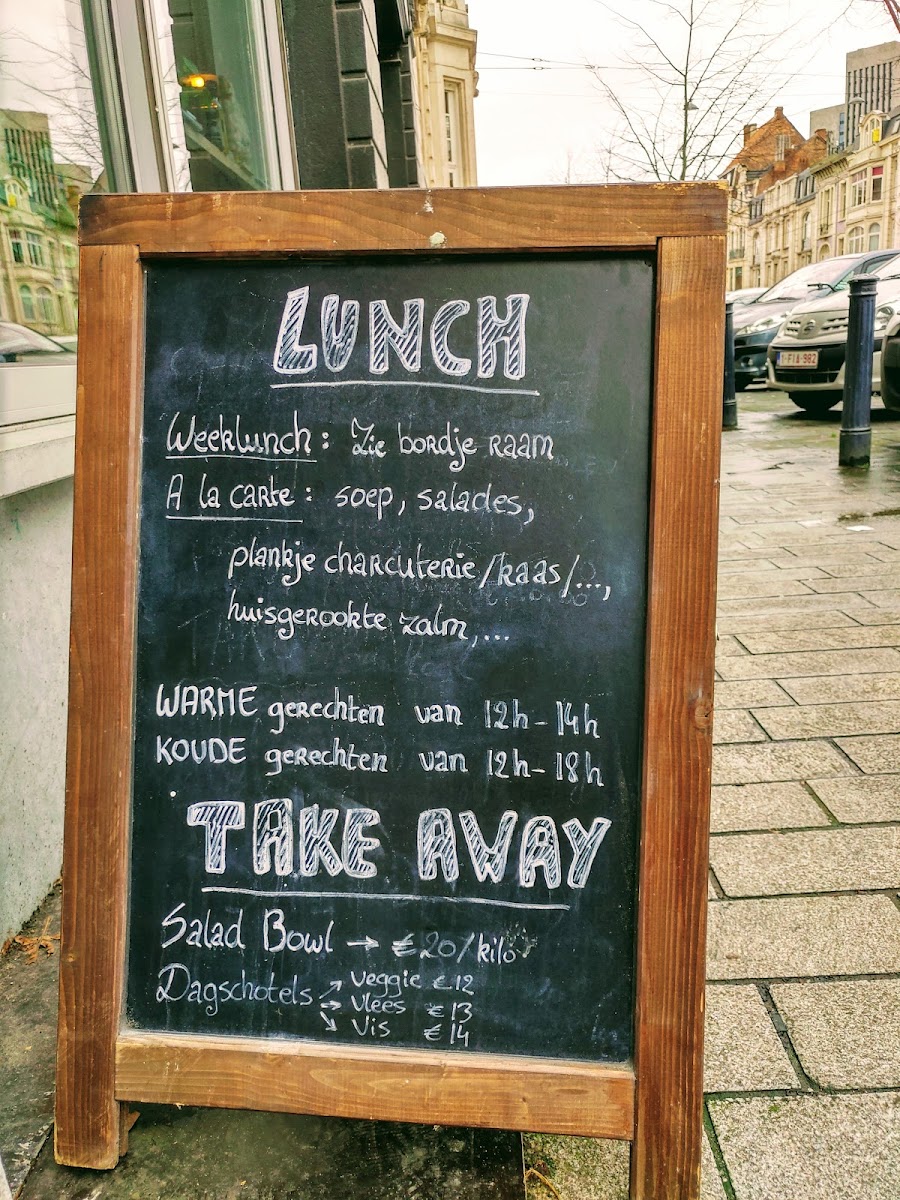 LUNCH
Weeklunch: Zie bordje raam
A la carte: soep, salades,
plankje charcuterie/kaas/...,
huisgerookte zalm,...
WARME gerechten van 12h-14h
KOUDE gerechten van 12h-18h
TAKE AWAY
Salad Bowl → €20/kilo
Dagschotels ↗ Veggie €12
→ Vlees €13
↘ Vis €14
1-FIA-982